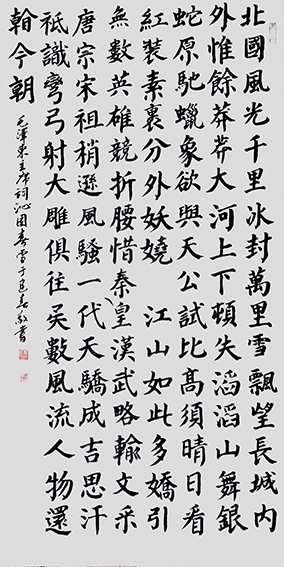 北國風光千里冰封萬里雪飄望長城內
外惟餘莽莽大河上下頓失滔滔山舞銀
蛇原馳蠟象欲與天公試比高須晴日看
紅裝素裹分外妖嬈 江山如此多嬌引
無數英雄競折腰惜秦皇漢武略輸文采
唐宗宋祖稍遜風騷一代天驕成吉思汗
祗識彎弓射大雕俱往矣數風流人物還
看今朝
毛澤東主席詞沁园春雪于建春敬書